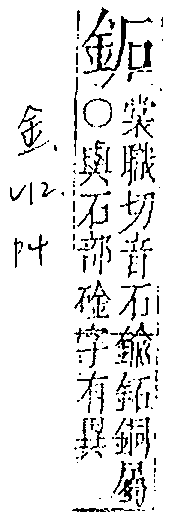 鉐
裳職切音石鍮鉐銅屬
○與石部字有異
金